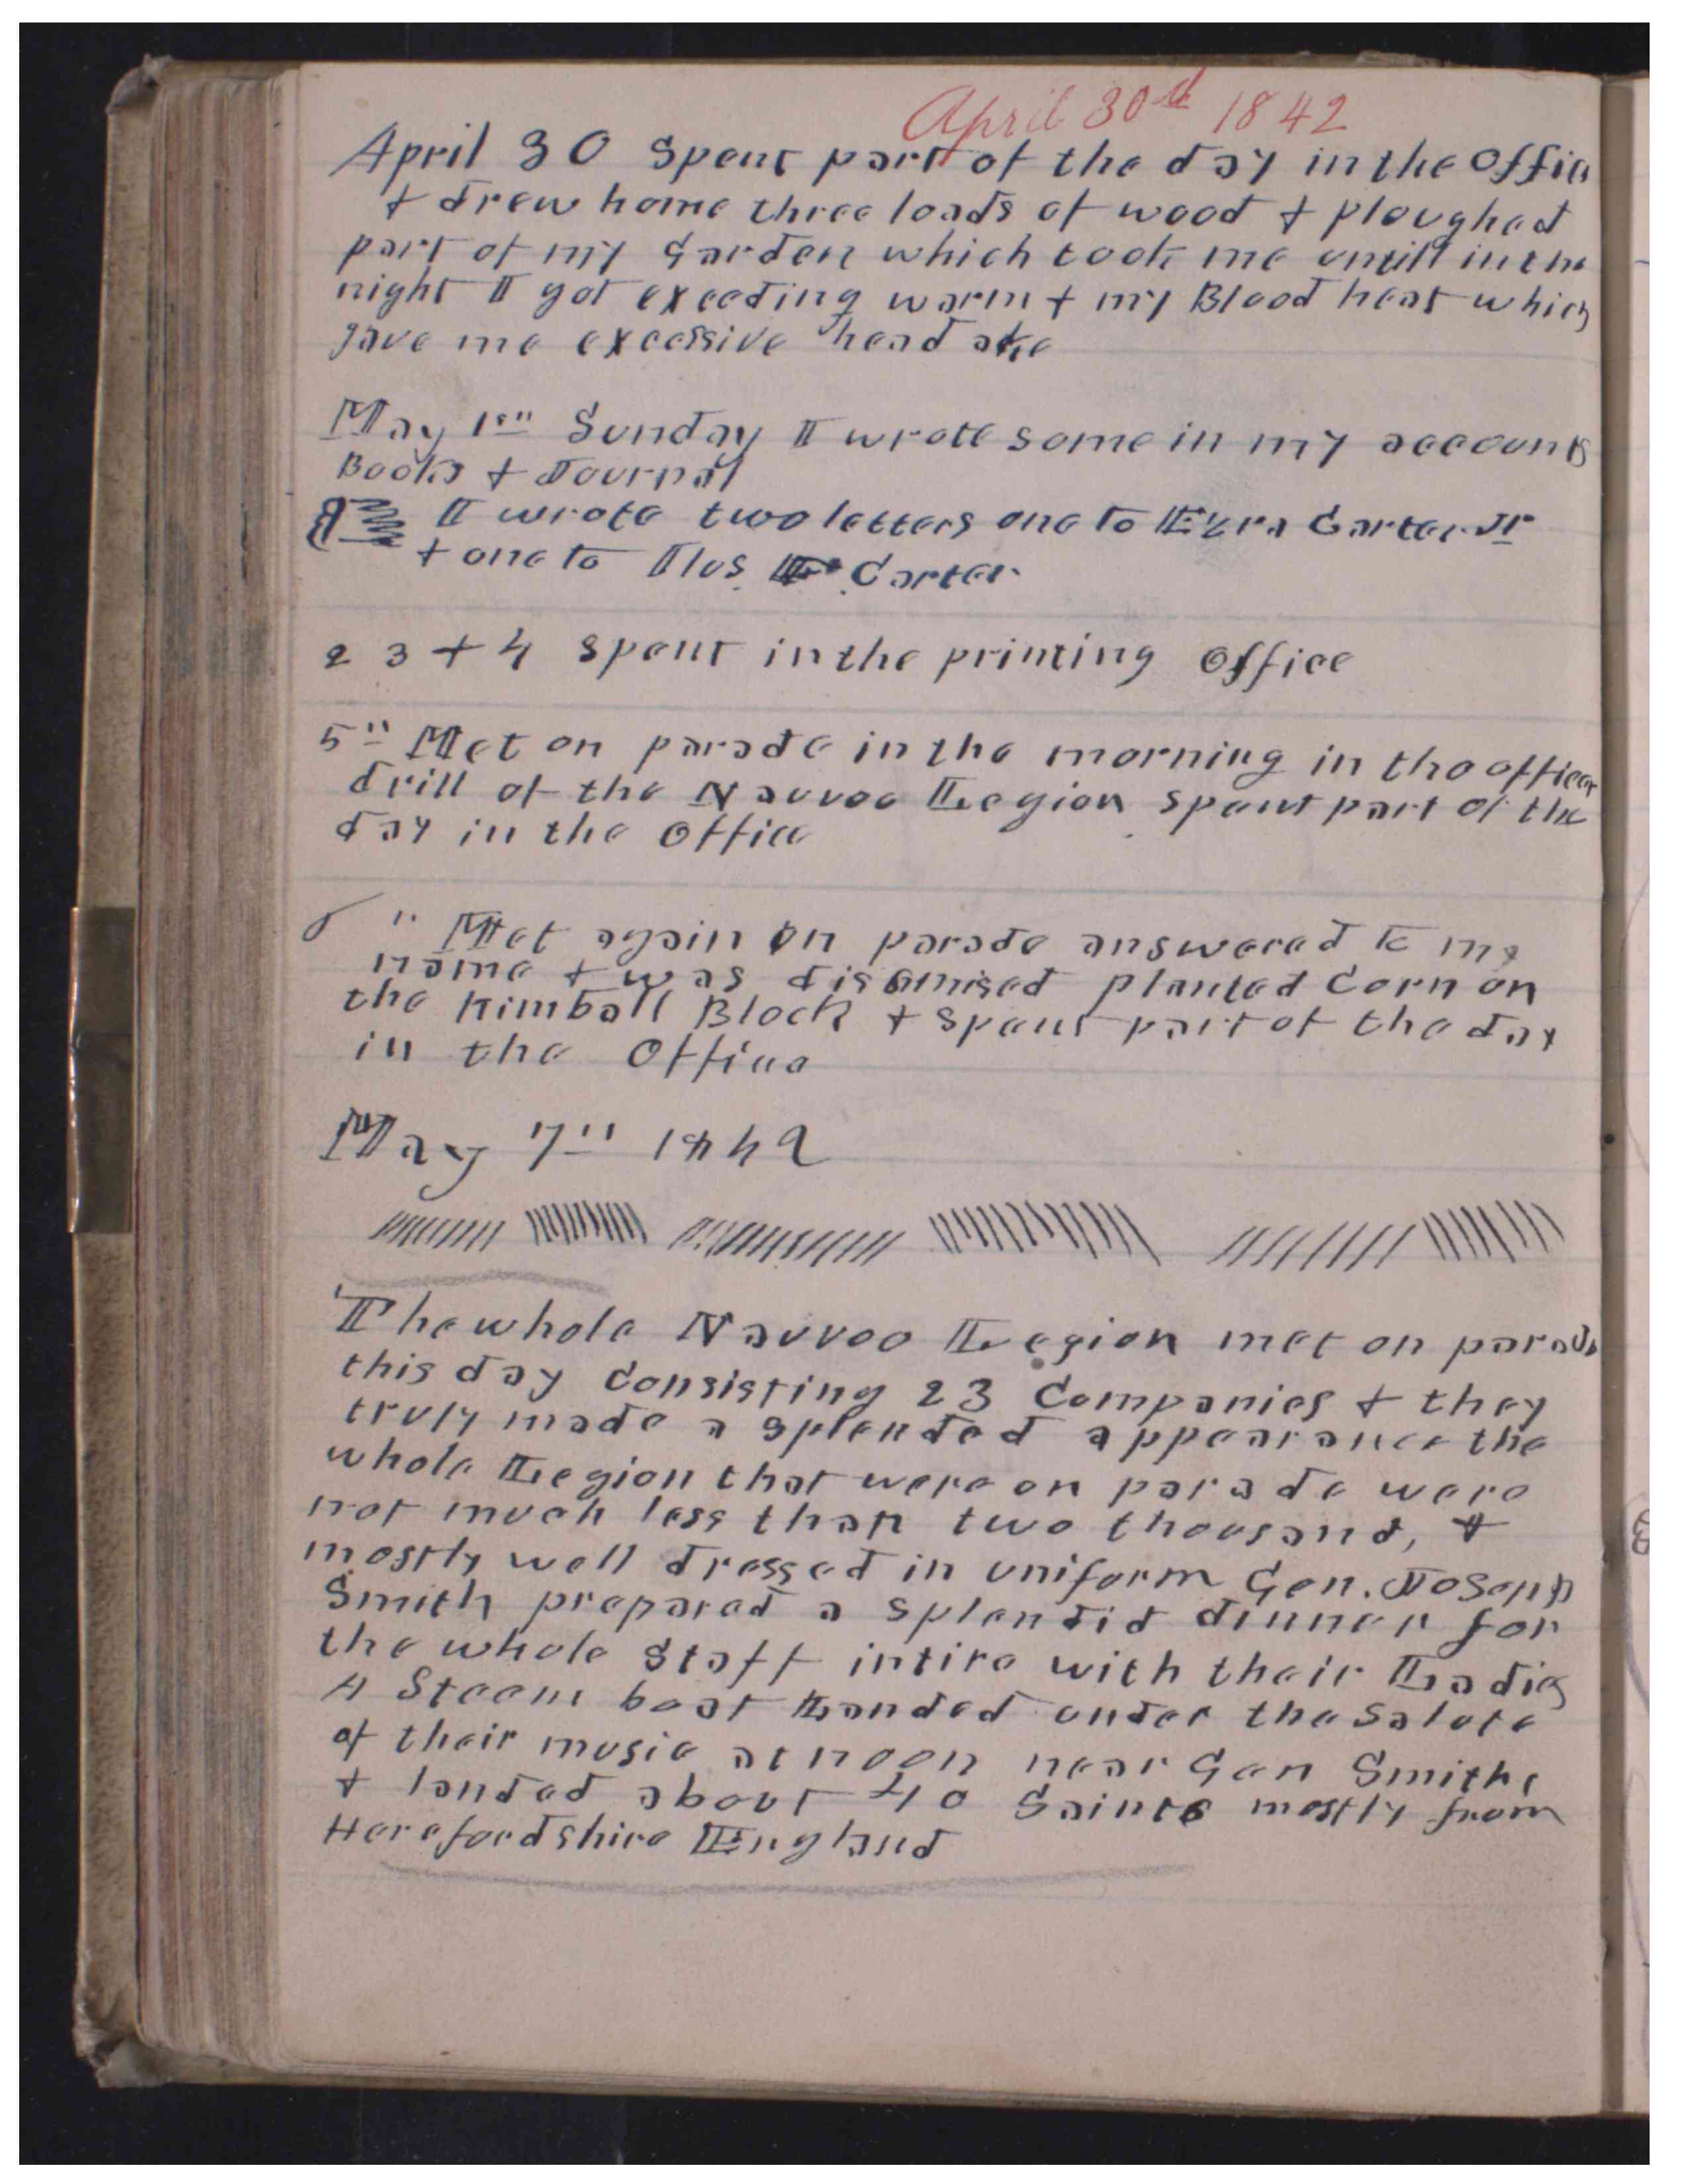 April 30d 1842
April 30 Spent part of the day in the Office
& drew home three loads of wood & ploughed
part of my Garden which took me untill in the
night I got exceding warm & my Blood heat which
gave me excessive head ake
May 1st Sunday I wrote some in my accounts
Books & Journal
I wrote two letters one to Ezra Carter Jr
& one to Ilus Carter
2 3 & 4 spent in the printing office
5" Met on parade in the morning in the officer
drill of the Nauvoo Legion spent part of the
day in the office
6" Met again on parade answered to my
name & was dismised planted Corn on
the Kimball Block & spent part of the day
in the Office
May 7" 1842
The whole Nauvoo Legion met on parade
this day Consisting 23 Companies & they
truly made a splended appearance the
whole Legion that were on parade were
not much less than two thousand, &
mostly well dressed in uniform Gen. Joseph
Smith prepared a splendid dinner for
the whole Staff intire with their Ladies
A Steem boat Landed under the Salute
of their music at noon near Gen Smiths
& landed about 40 Saints mostly from
Herefordshire England